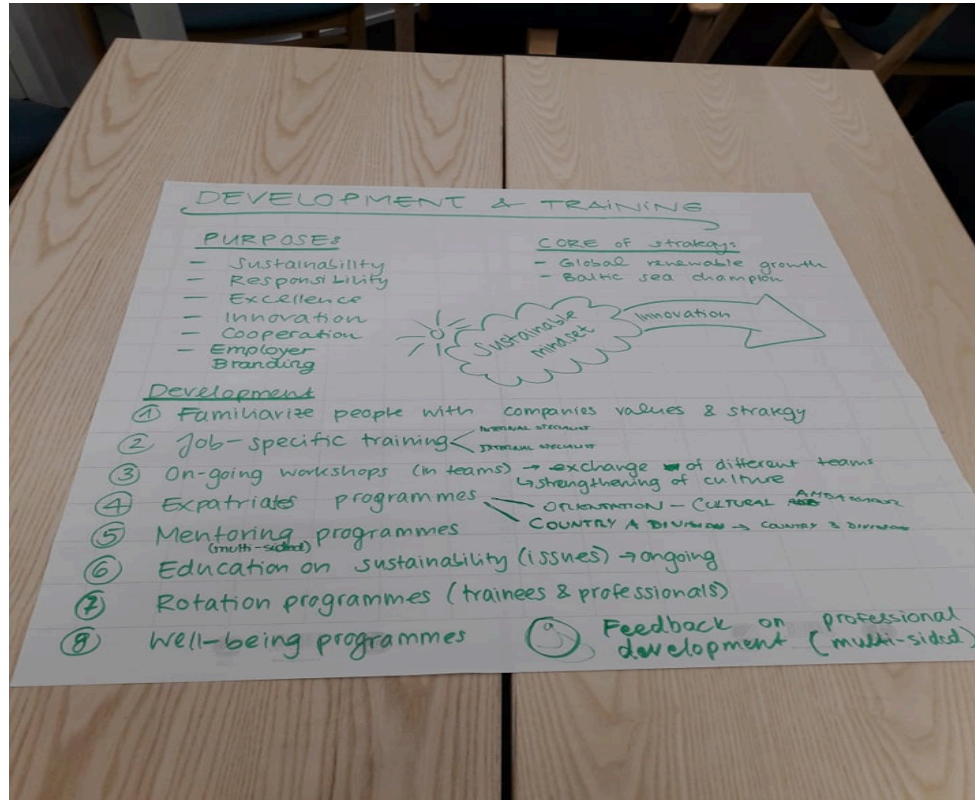 DEVELOPMENT & TRAINING
PURPOSES
- Sustainability
- Responsibility
- Excellence
- Innovation
- Cooperation
- Employer
Branding
CORE of strategy:
- Global renewable growth
- Baltic sea champion
Sustainable
mindset
Innovation
Development
① Familiarize people with companies values & strategy
② Job-specific training
INTERNAL SPECIALIST
EXTERNAL SPECIALIST
③ On-going workshops (in teams) → exchange of different teams
↳ strengthening of culture
④ Expatriates programmes
ORIENTATION - CULTURAL
COUNTRY A DIVISION → COUNTRY B DIVISION
⑤ Mentoring programmes
(multi-sided)
⑥ Education on sustainability (issues) → ongoing
⑦ Rotation programmes (trainees & professionals)
⑧ Well-being programmes
⑨ Feedback on professional
development (multi-sided)